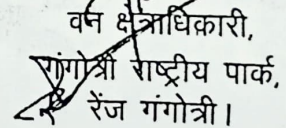 वन क्षेत्राधिकारी,
गंगोत्री राष्ट्रीय पार्क,
रेंज गंगोत्री।